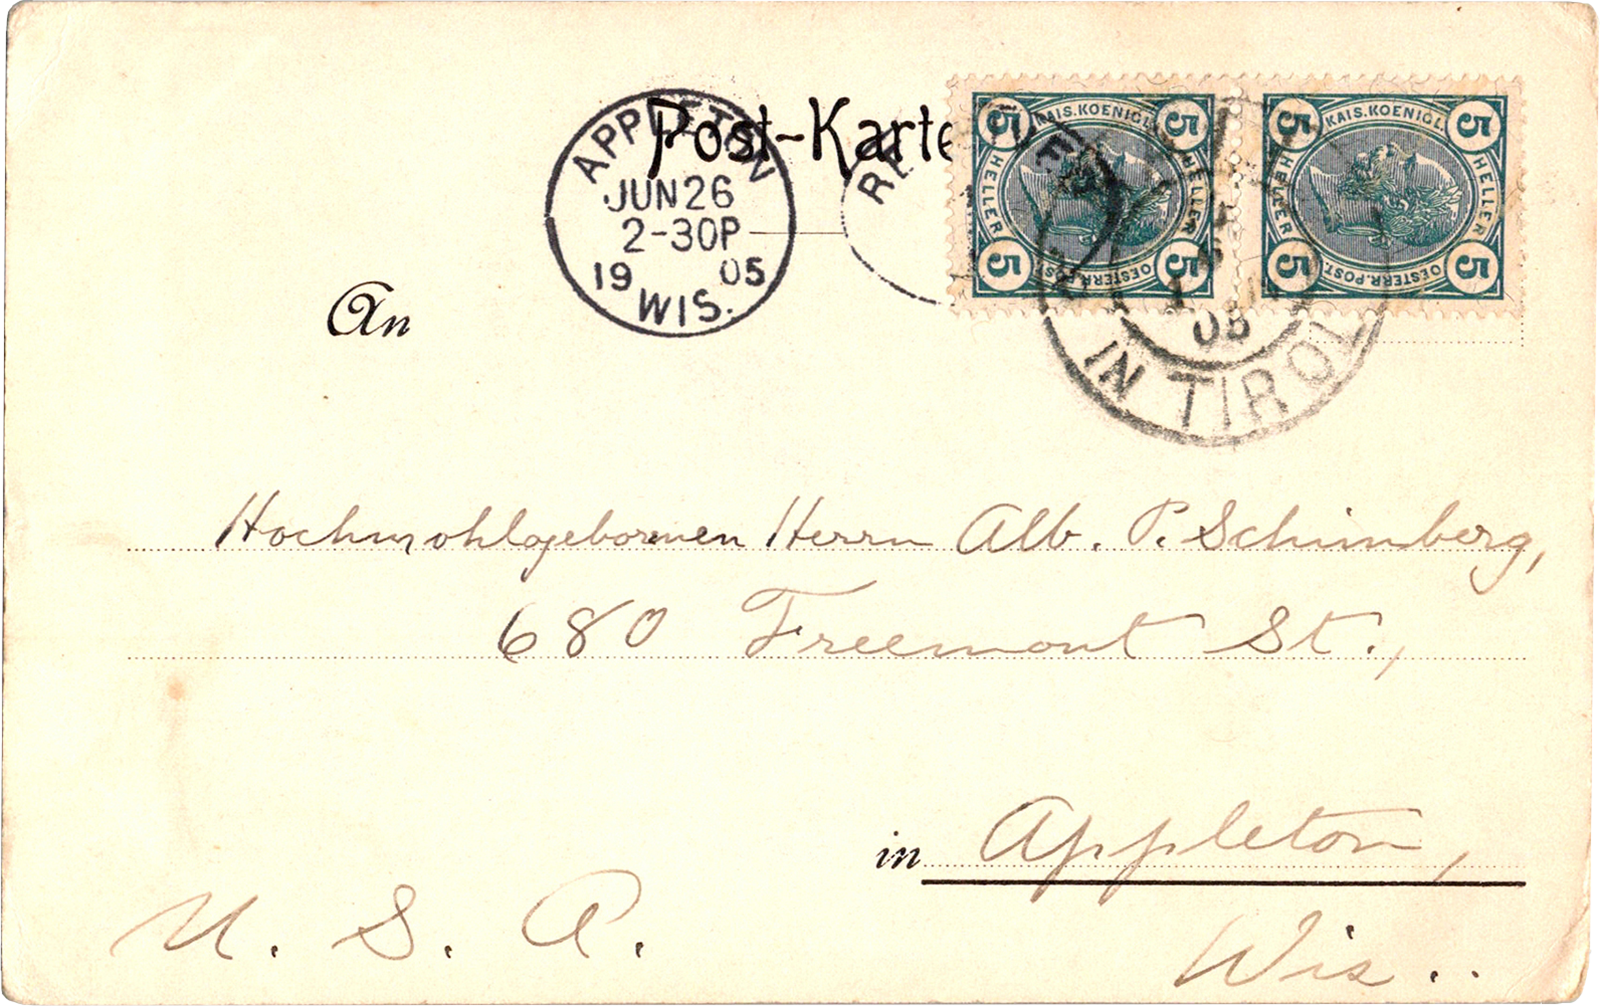 Post-Karte
APPLETON
JUN 26
2-30P
19 05
WIS.
KAIS. KOENIGL.
5 5
HELLER HELLER
5 5
OESTERR. POST.
KAIS. KOENIGL.
5 5
HELLER HELLER
5 5
OESTERR. POST.
05
IN TIROL
An
Hochwohlgeborenen Herrn Alb. P. Schimberg,
680 Freemont St.,
in Appleton,
Wis..
U. S. A.